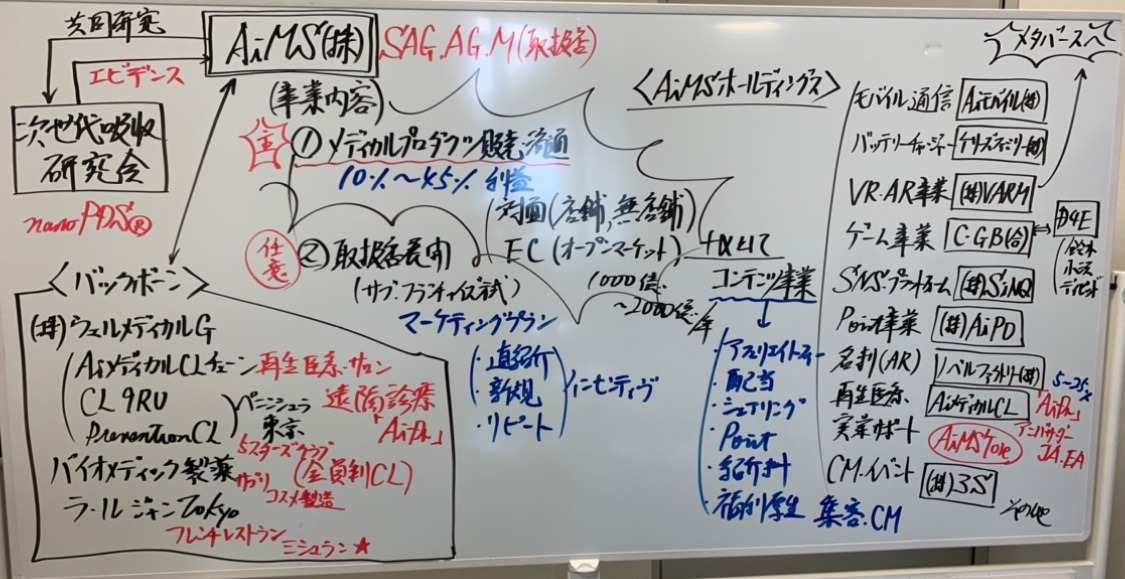 共同研究
AiMS(株)
SAG.AG.M(取扱店)
エビデンス
次世代吸収
研究会
nanoPDS®
(事業内容)
主
① メディカルプロダクツ販売・流通
10%〜45% 利益
対面(店舗,無店舗)
EC(オープンマーケット)
任意
② 取扱店展開
(サブ・フランチャイズ式)
マーケティングプラン
・直紹介
・新規
・リピート
インセンティヴ
1000億
〜2000億/年
<バックボーン>
(株)ウェルメディカルG
AiメディカルCLチェーン 再生医療・サロン
CL9RU
PreventionCL
ペニンシュラ
東京
遠隔診療
「AiDr.」
バイオメディック製薬
サプリ
コスメ製造
5スターズクラブ
(会員制CL)
ラ・ール ジャン Tokyo
フレンチレストラン
ミシュラン★
<AiMSホールディングス>
+αとして
コンテンツ事業
・アフィリエイトフィー
・配当
・シェアリング
・Point
・紹介料
・福利厚生
集客・CM
メタバースへ
モバイル通信 Aiモバイル(株)
バッテリーチャージャー
VR・AR事業 (株)VARM
ゲーム事業 C・G・B(合)
D4E
SNS・プラットホーム (株)SiNQ
Point事業 (株)AiPO
名刺(AR) ノベルファクトリー(株)
再生医療 AiメディカルCL
「AiDr.」
5-25%
実業サポート AiMSTore
アンバサダー
JA.EA
CM・イベント (株)3S
その他